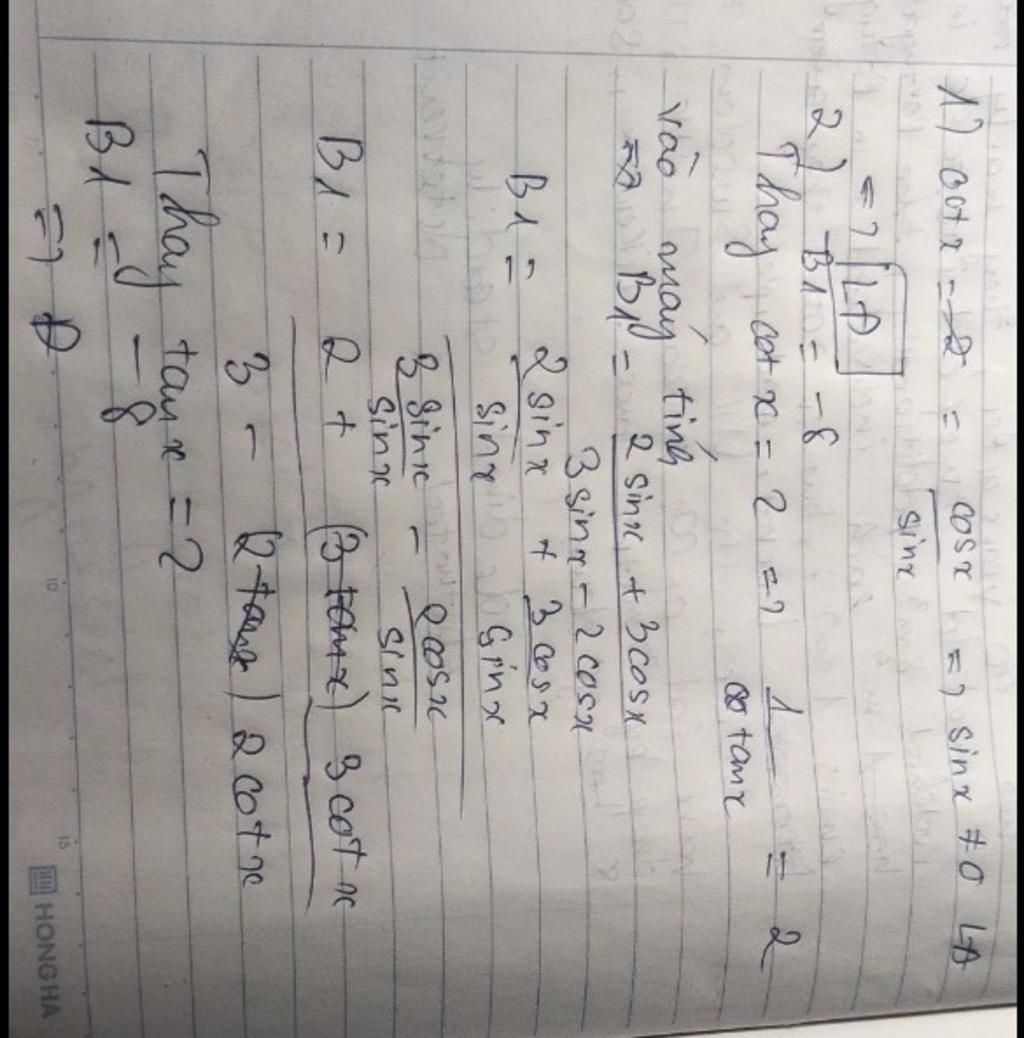 1) cot x = 2 = cosx / sinx => sinx ≠ 0 LĐ
=> LĐ
2) B1 = -8
Thay cot x = 2 => 1 / tanx = 2
vào máy tính
=> B1 = 2 sinx + 3cosx / 3sinx - 2cosx
B1 = 2 sinx / sinx + 3 cosx / sinx
3 sinx / sinx - 2cosx / sinx
B1 = 2 + (3 tanx) 3 cot x
3 - (2 tanx) 2 cot x
Thay tan x = 2
B1 = -8
=> Đ
10
15
HONG HA